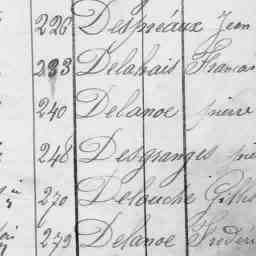 226 Despréaux Jean
233 Delahais Francois
240 Delanoe pierre
248 Desgranges
270 Delouche Gilles
279 Delanoe Frédéri